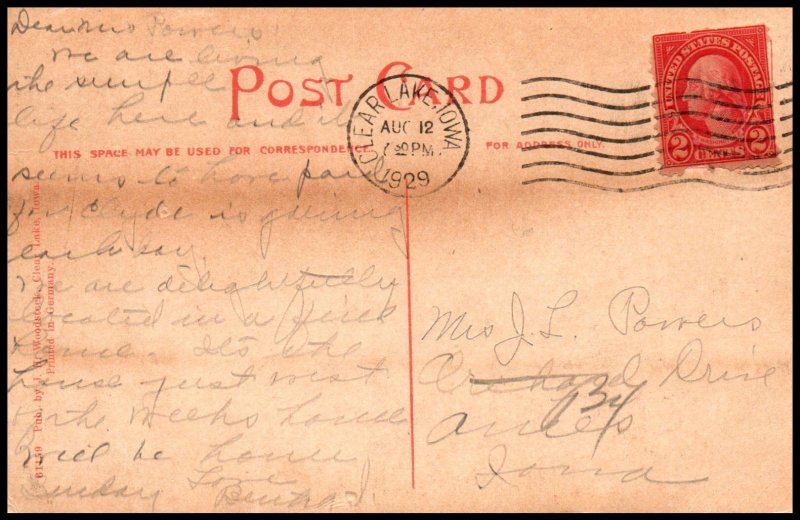 Dear Mrs Powers:
We are living
the simple
life here and it
seems to have paid
for Clyde is gaining
each day.
We are delightfully
located in a fine
home. It's the
house just west
of the Weeks home
Will be home
Sunday Love
POST CARD
THIS SPACE MAY BE USED FOR CORRESPONDENCE
FOR ADDRESS ONLY.
CLEAR LAKE, IOWA
AUG 12
PM
1929
UNITED STATES POSTAGE
2 CENTS 2
Mrs J. L. Powers
Orchard Drive
134
Ames
Iowa
61159 Pub. by J. H. Woodstock, Clear Lake, Iowa.
Printed in Germany.